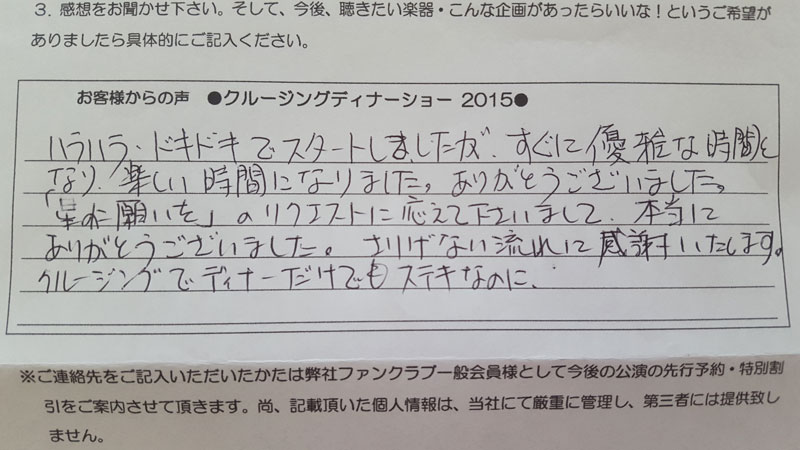 3. 感想をお聞かせ下さい。そして、今後、聴きたい楽器・こんな企画があったらいいな!というご希望が
ありましたら具体的にご記入ください。
お客様からの声 ●クルージングディナーショー 2015●
ハラハラ・ドキドキでスタートしましたが、すぐに優雅な時間と
なり、楽しい時間になりました。ありがとうございました。
「星に願いを」のリクエストに応えて下さいまして、本当に
ありがとうございました。さりげない流れに感謝いたします。
クルージングでディナーだけでもステキなのに、
※ご連絡先をご記入いただいたかたは弊社ファンクラブ一般会員様として今後の公演の先行予約・特別割
引をご案内させて頂きます。尚、記載頂いた個人情報は、当社にて厳重に管理し、第三者には提供致し
ません。